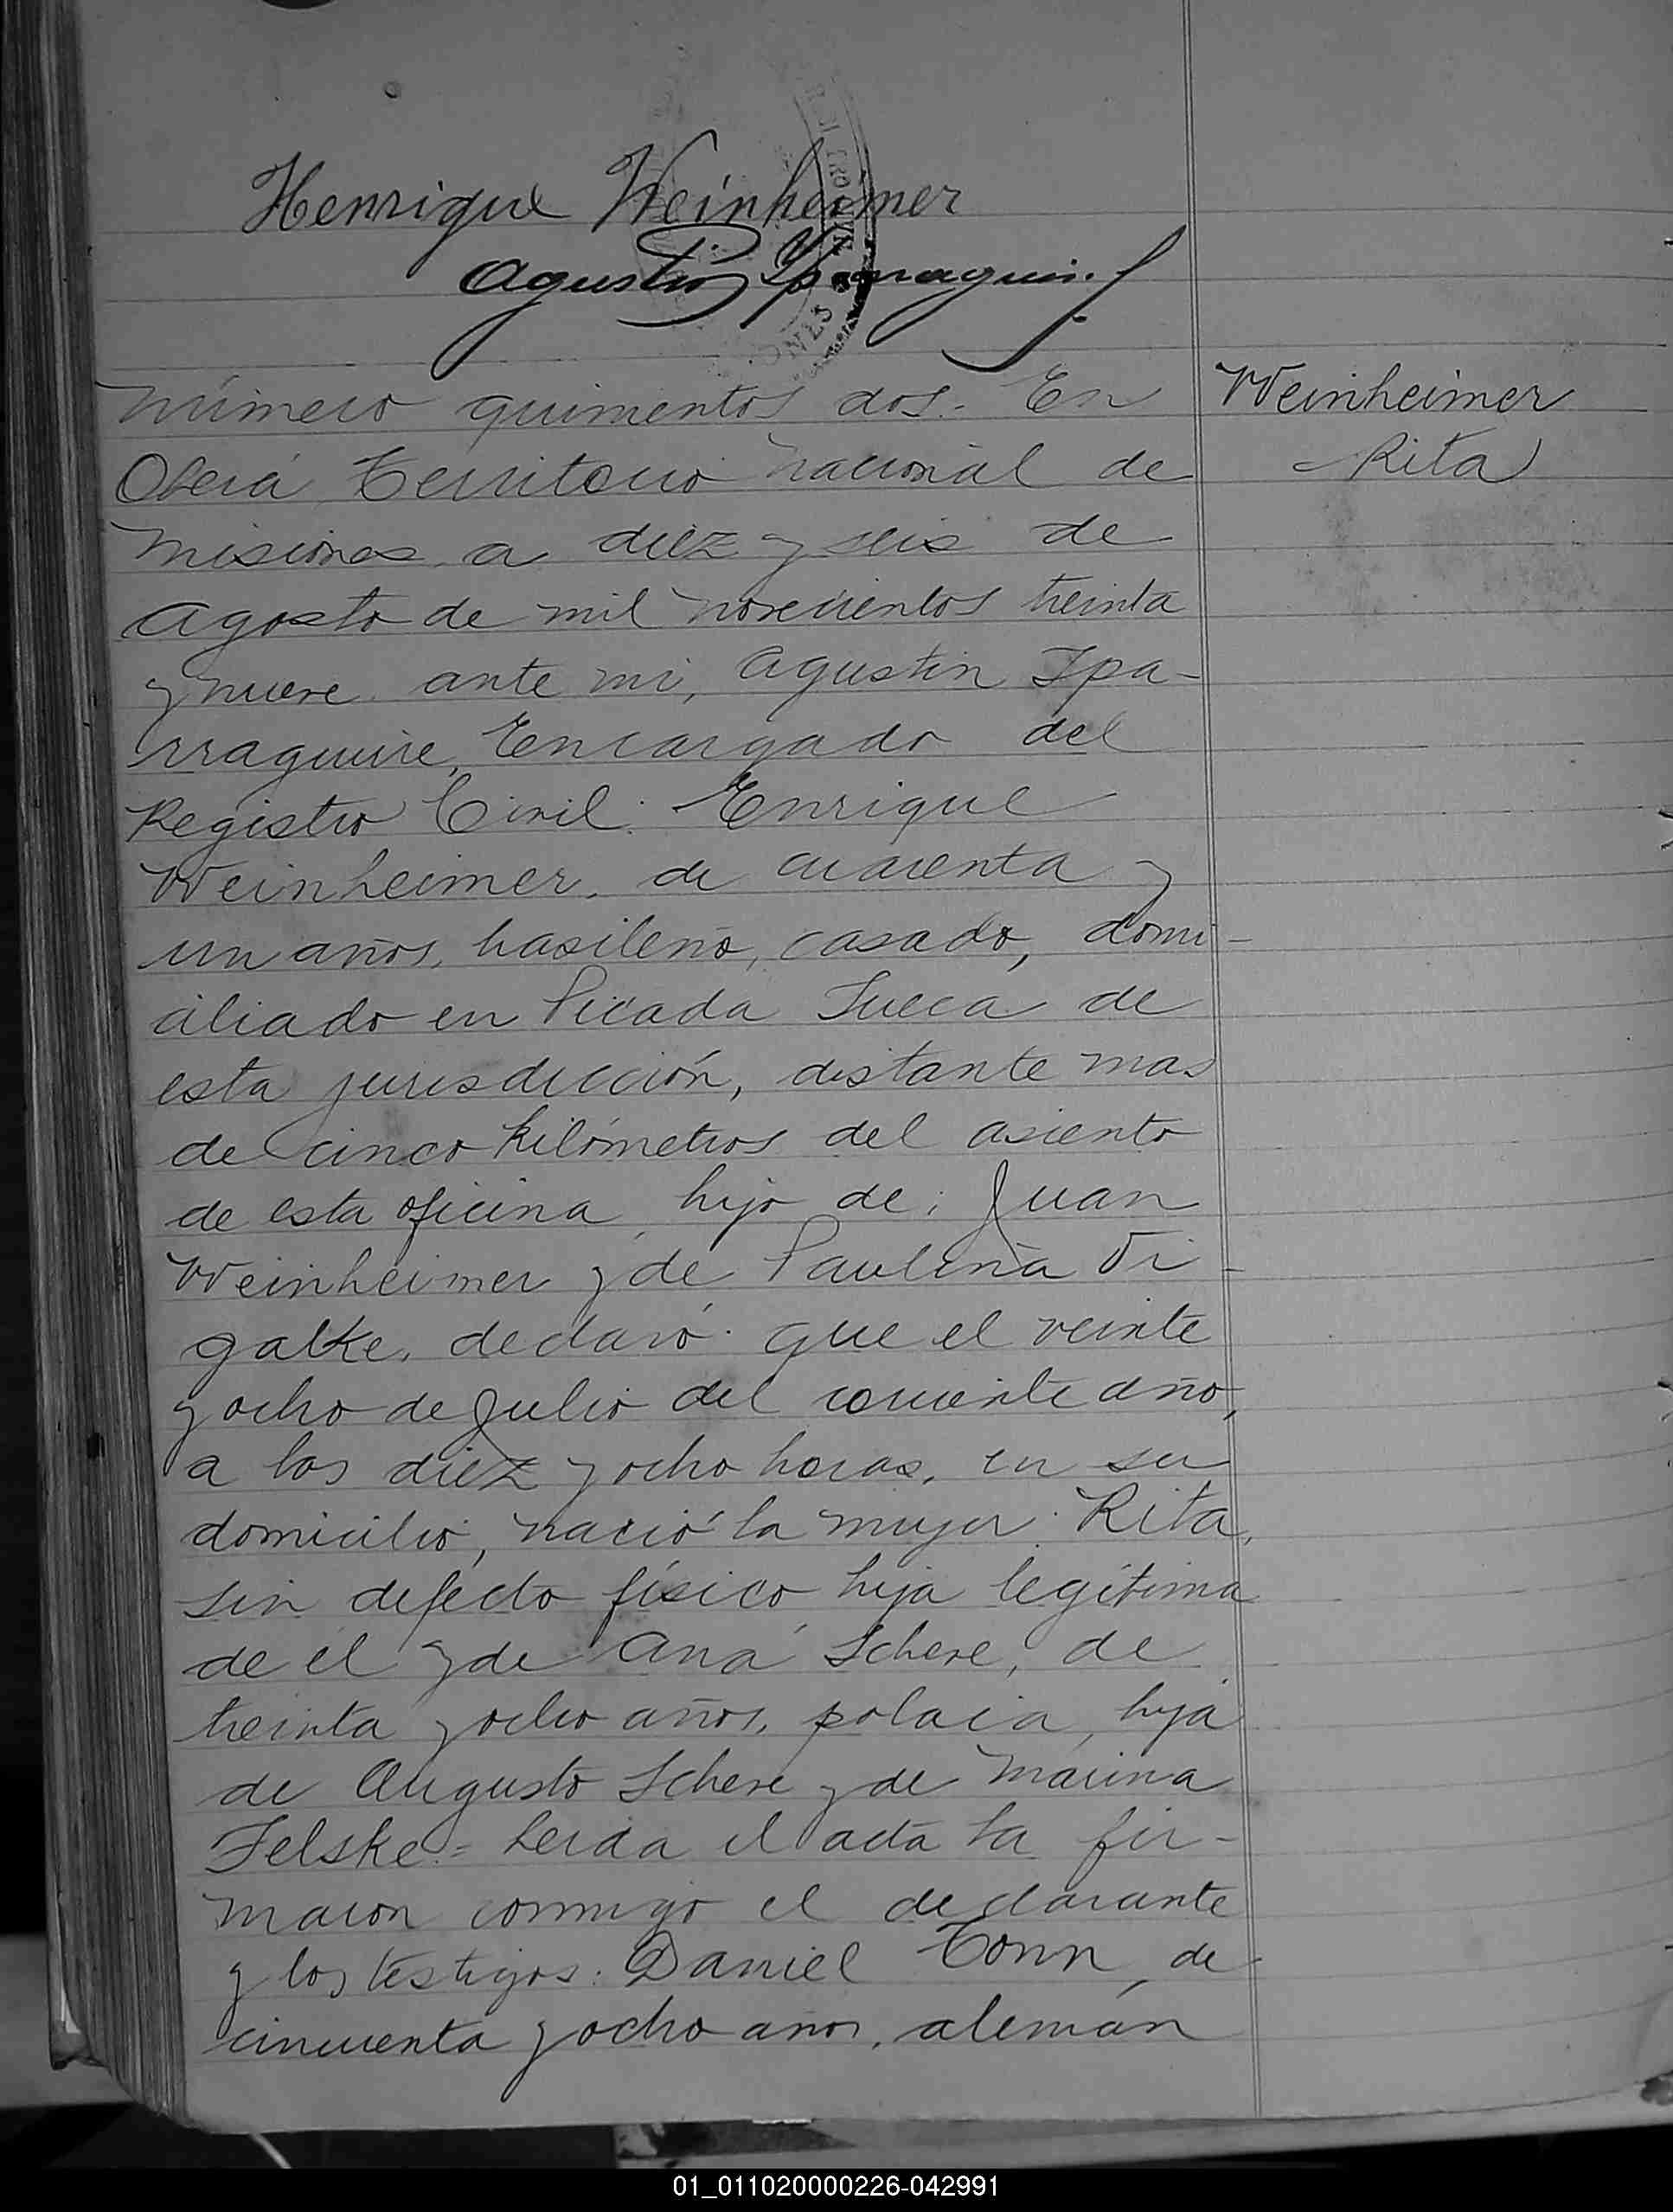 Henrique Weinheimer
Agustin Yparraguirre
Número quinientos dos.- En
Oberá Territorio nacional de
Misiones a diez y seis de
Agosto de mil novecientos treinta
y nueve ante mi, Agustin Ipa-
rraguirre, Encargado del
Registro Civil: Enrique
Weinheimer, de cuarenta y
un años, brasileño, casado, domi-
ciliado en Picada Sueca de
esta jurisdicción, distante mas
de cinco kilómetros del asiento
de esta oficina, hijo de: Juan
Weinheimer y de Paulina Vi-
galke, declaró: que el veinte
y ocho de Julio del corriente año,
a las diez y ocho horas, en su
domicilio, nació la mujer: Rita,
sin defecto físico, hija legítima
de él y de Ana Schere, de
treinta y ocho años, polaca, hija
de Augusto Schere y de Marina
Felske.= Leida el acta la fir-
maron conmigo el declarante
y los testigos: Daniel Tonn, de
cincuenta y ocho años, alemán
Weinheimer
Rita
01_011020000226-042991